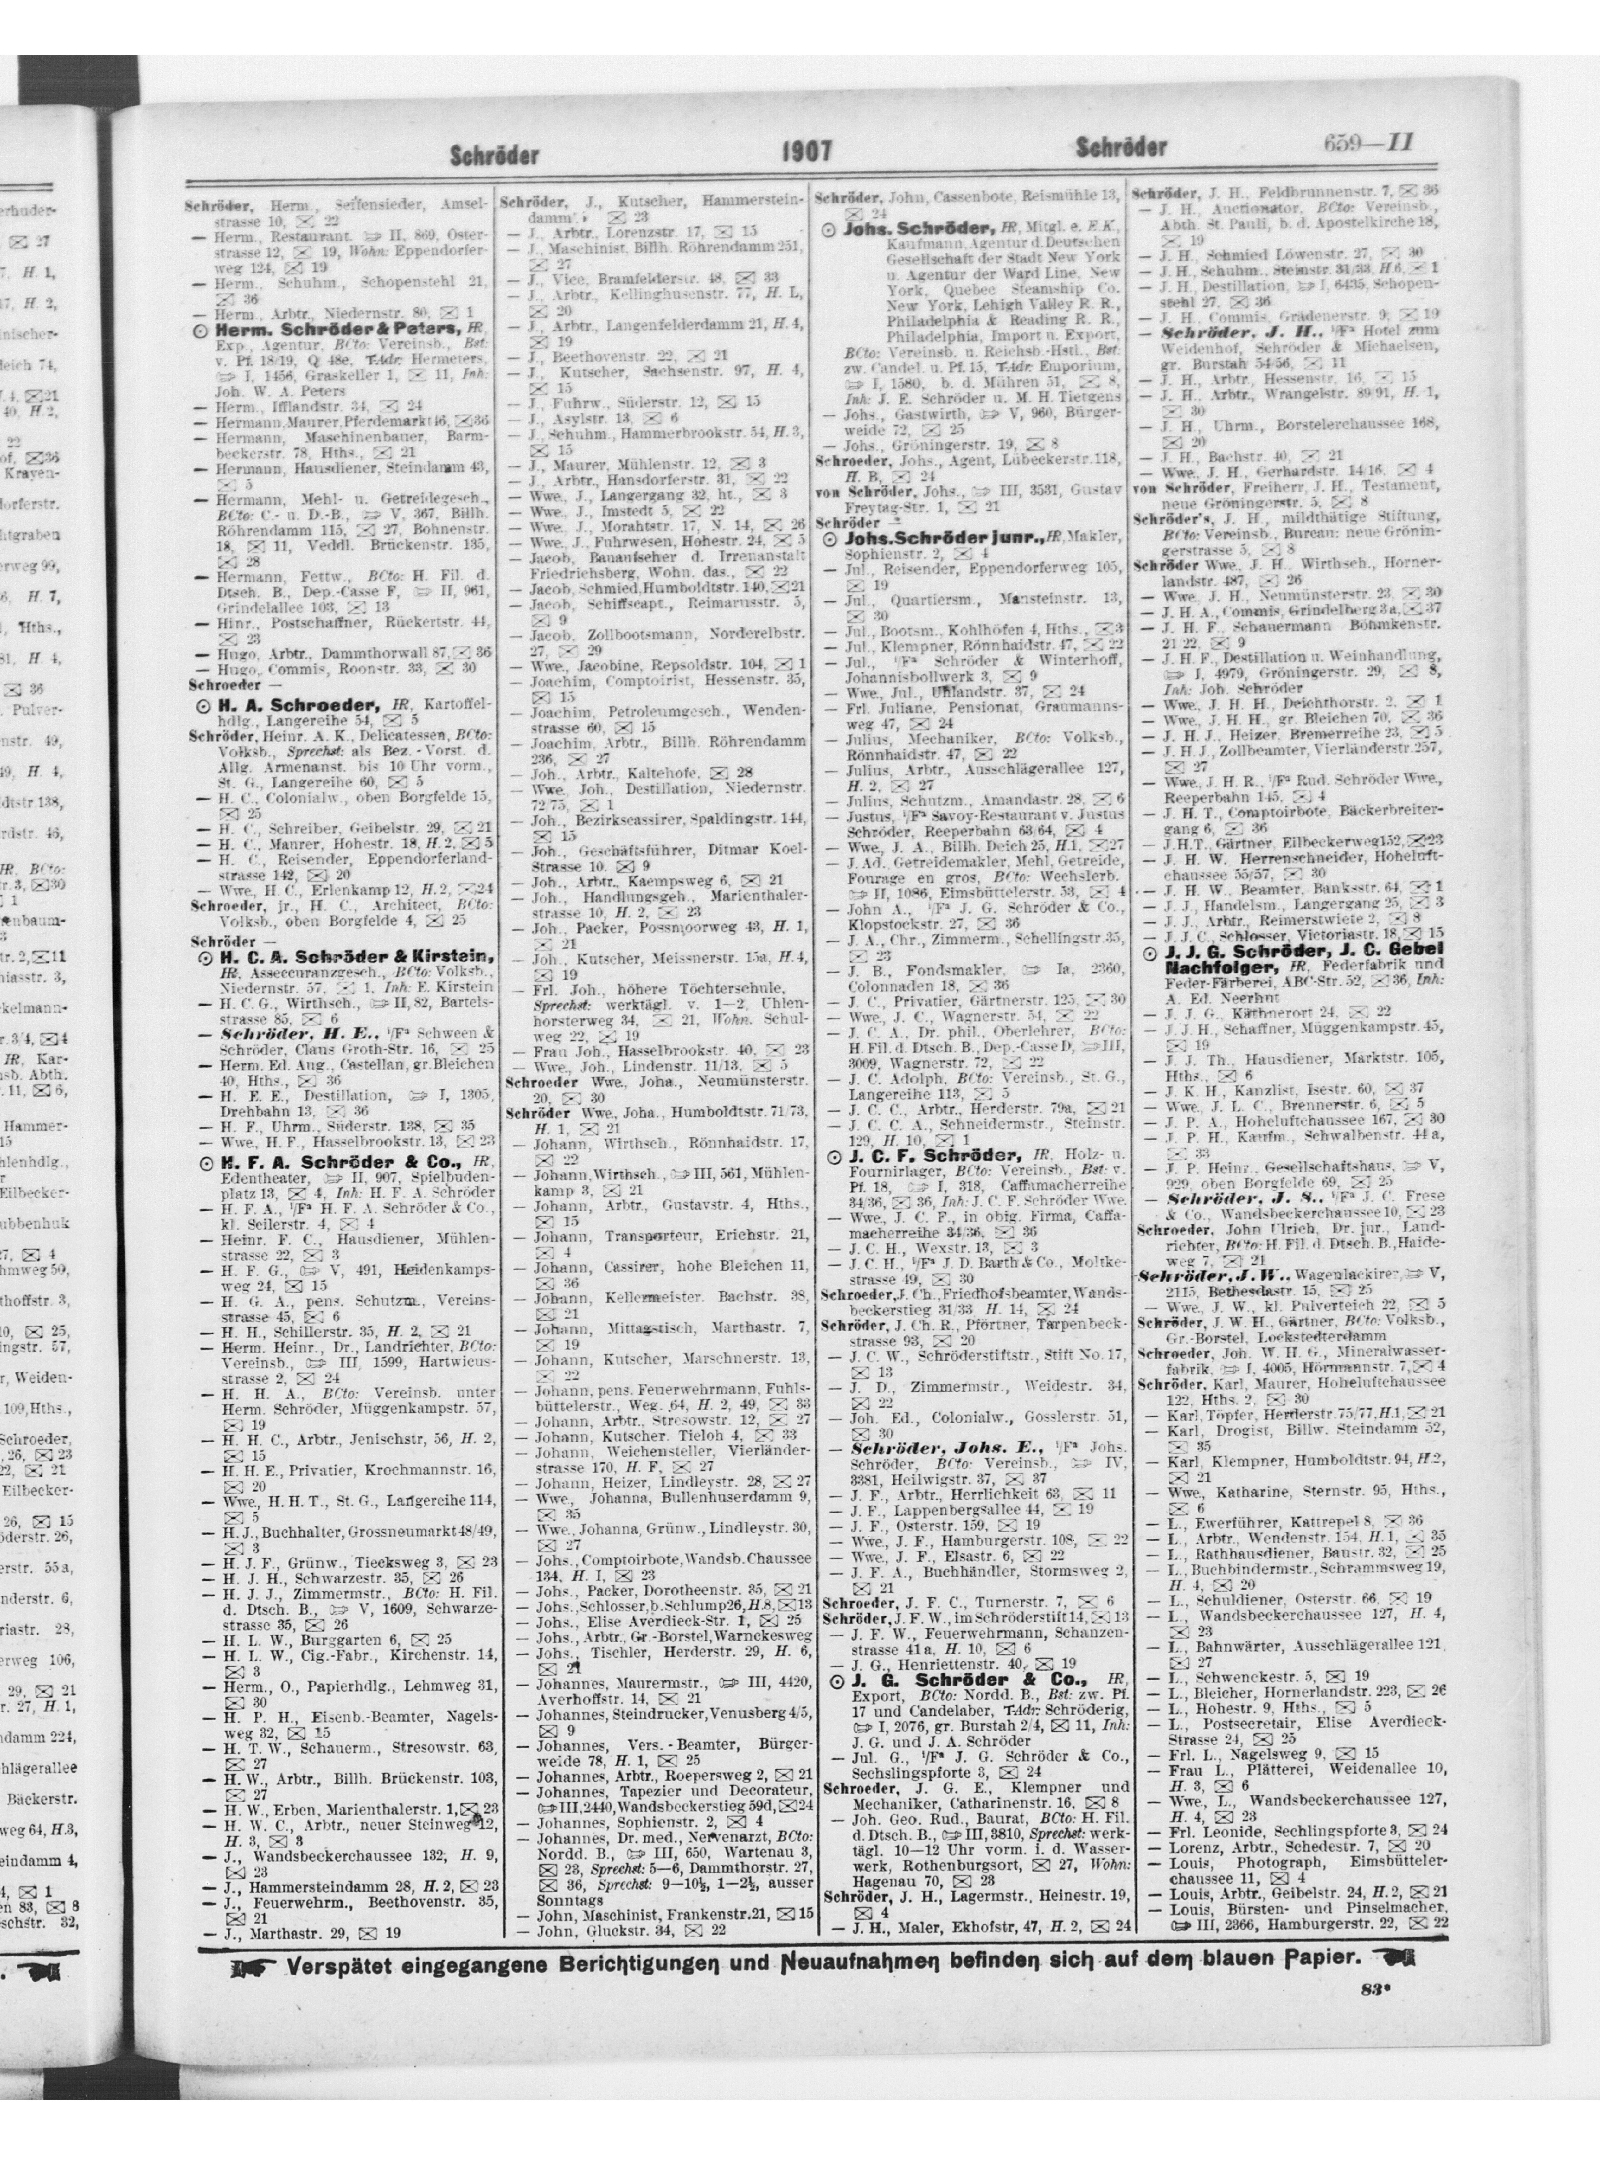 Schröder 1907 Schröder 659—II
Schröder, Herm., Seifensieder, Amsel-
strasse 10, ✉ 22
— Herm., Restaurant. II, 869, Oster-
strasse 12, ✉ 19, Wohn: Eppendorfer-
weg 124, ✉ 19
— Herm., Schuhm., Schopenstehl 21,
✉ 36
— Herm., Arbtr., Niedernstr. 80, ✉ 1
⊙ Herm. Schröder & Peters, HR,
Exp., Agentur, BCto: Vereinsb., Bst:
v. Pf. 18/19, Q 48e, T-Adr: Hermeters,
I, 1456, Graskeller 1, ✉ 11, Inh:
Joh. W. A. Peters
— Herm., Ifflandstr. 34, ✉ 24
— Hermann, Maurer, Pferdemarkt 46, ✉ 36
— Hermann, Maschinenbauer, Barm-
beckerstr. 78, Hths., ✉ 21
— Hermann, Hausdiener, Steindamm 43,
✉ 5
— Hermann, Mehl- u. Getreidegesch.,
BCto: C.- u. D.-B., V, 367, Billh.
Röhrendamm 115, ✉ 27, Bohnenstr.
18, ✉ 11, Veddl. Brückenstr. 135,
✉ 28
— Hermann, Fettw., BCto: H. Fil. d.
Dtsch. B., Dep.-Casse F, II, 961,
Grindelallee 103, ✉ 13
— Hinr., Postschaffner, Rückertstr. 44,
✉ 23
— Hugo, Arbtr., Dammthorwall 87, ✉ 36
— Hugo, Commis, Roonstr. 33, ✉ 30
Schroeder —
⊙ H. A. Schroeder, HR, Kartoffel-
hdlg., Langereihe 54, ✉ 5
Schröder, Heinr. A. K., Delicatessen, BCto:
Volksb., Sprechst: als Bez.-Vorst. d.
Allg. Armenanst. bis 10 Uhr vorm.,
St. G., Langereihe 60, ✉ 5
— H. C., Colonialw., oben Borgfelde 15,
✉ 25
— H. C., Schreiber, Geibelstr. 29, ✉ 21
— H. C., Maurer, Hohestr. 18, H. 2, ✉ 5
— H. C., Reisender, Eppendorferland-
strasse 142, ✉ 20
— Wwe., H. C., Erlenkamp 12, H. 2, ✉ 24
Schroeder, jr., H. C., Architect, BCto:
Volksb., oben Borgfelde 4, ✉ 25
Schröder —
⊙ H. C. A. Schröder & Kirstein,
HR, Assecuranzgesch., BCto: Volksb.,
Niedernstr. 57, ✉ 1, Inh: E. Kirstein
— H. C. G., Wirthsch., II, 82, Bartels-
strasse 85, ✉ 6
— Schröder, H. E., i/Fa Schween &
Schröder, Claus Groth-Str. 16, ✉ 25
— Herm. Ed. Aug., Castellan, gr. Bleichen
40, Hths., ✉ 36
— H. E. E., Destillation, I, 1305,
Drehbahn 13, ✉ 36
— H. F., Uhrm., Süderstr. 138, ✉ 35
— Wwe., H. F., Hasselbrookstr. 13, ✉ 23
⊙ H. F. A. Schröder & Co., HR,
Edentheater, II, 907, Spielbuden-
platz 13, ✉ 4, Inh: H. F. A. Schröder
— H. F. A., i/Fa H. F. A. Schröder & Co.,
kl. Seilerstr. 4, ✉ 4
— Heinr. F. C., Hausdiener, Mühlen-
strasse 22, ✉ 3
— H. F. G., V, 491, Heidenkamps-
weg 24, ✉ 15
— H. G. A., pens. Schutzm., Vereins-
strasse 45, ✉ 6
— H. H., Schillerstr. 35, H. 2, ✉ 21
— Herm. Heinr., Dr., Landrichter, BCto:
Vereinsb., III, 1599, Hartwicus-
strasse 2, ✉ 24
— H. H. A., BCto: Vereinsb. unter
Herm. Schröder, Müggenkampstr. 57,
✉ 19
— H. H. C., Arbtr., Jenischstr, 56, H. 2,
✉ 15
— H. H. E., Privatier, Krochmannstr. 16,
✉ 20
— Wwe., H. H. T., St. G., Langereihe 114,
✉ 5
— H. J., Buchhalter, Grossneumarkt 48/49,
✉ 3
— H. J. F., Grünw., Tiecksweg 3, ✉ 23
— H. J. H., Schwarzestr. 35, ✉ 26
— H. J. J., Zimmermstr., BCto: H. Fil.
d. Dtsch. B., V, 1609, Schwarze-
strasse 35, ✉ 26
— H. L. W., Burggarten 6, ✉ 25
— H. L. W., Cig.-Fabr., Kirchenstr. 14,
✉ 3
— Herm., O., Papierhdlg., Lehmweg 31,
✉ 30
— H. P. H., Eisenb.-Beamter, Nagels-
weg 32, ✉ 15
— H. T. W., Schauerm., Stresowstr. 63,
✉ 27
— H. W., Arbtr., Billh. Brückenstr. 103,
✉ 27
— H. W., Erben, Marienthalerstr. 1, ✉ 23
— H. W. C., Arbtr., neuer Steinweg 12,
H. 3, ✉ 3
— J., Wandsbeckerchaussee 132, H. 9,
✉ 23
— J., Hammersteindamm 28, H. 2, ✉ 23
— J., Feuerwehrm., Beethovenstr. 35,
✉ 21
— J., Marthastr. 29, ✉ 19
Schröder, J., Kutscher, Hammerstein-
damm ✉ 23
— J., Arbtr., Lorenzstr. 17, ✉ 15
— J., Maschinist, Billh. Röhrendamm 251,
✉ 27
— J., Vice, Bramfelderstr. 48, ✉ 33
— J., Arbtr., Kellinghusenstr. 77, H. L,
✉ 20
— J., Arbtr., Langenfelderdamm 21, H. 4,
✉ 19
— J., Beethovenstr. 22, ✉ 21
— J., Kutscher, Sachsenstr. 97, H. 4,
✉ 15
— J., Fuhrw., Süderstr. 12, ✉ 15
— J., Asylstr. 13, ✉ 6
— J., Schuhm., Hammerbrookstr. 54, H. 3,
✉ 15
— J., Maurer, Mühlenstr. 12, ✉ 3
— J., Arbtr., Hansdorferstr. 31, ✉ 22
— Wwe., J., Langergang 32, ht., ✉ 3
— Wwe., J., Imstedt 5, ✉ 22
— Wwe., J., Morahtstr. 17, N. 14, ✉ 26
— Wwe., J., Fuhrwesen, Hohestr. 24, ✉ 5
— Jacob, Bauaufseher d. Irrenanstalt
Friedrichsberg, Wohn. das., ✉ 22
— Jacob, Schmied, Humboldtstr. 140, ✉ 21
— Jacob, Schiffscapt., Reimarusstr. 5,
✉ 9
— Jacob, Zollbootsmann, Norderelbstr.
27, ✉ 29
— Wwe., Jacobine, Repsoldstr. 104, ✉ 1
— Joachim, Comptoirist, Hessenstr. 35,
✉ 15
— Joachim, Petroleumgesch., Wenden-
strasse 60, ✉ 15
— Joachim, Arbtr., Billh. Röhrendamm
236, ✉ 27
— Joh., Arbtr., Kaltehofe, ✉ 28
— Wwe. Joh., Destillation, Niedernstr.
72/75, ✉ 1
— Joh., Bezirkscassirer, Spaldingstr. 144,
✉ 15
— Joh., Geschäftsführer, Ditmar Koel-
Strasse 10, ✉ 9
— Joh., Arbtr., Kaempsweg 6, ✉ 21
— Joh., Handlungsgeh., Marienthaler-
strasse 10, H. 2, ✉ 23
— Joh., Packer, Possmoorweg 43, H. 1,
✉ 21
— Joh., Kutscher, Meissnerstr. 15a, H. 4,
✉ 19
— Frl. Joh., höhere Töchterschule,
Sprechst: werktägl. v. 1—2, Uhlen-
horsterweg 34, ✉ 21, Wohn. Schul-
weg 22, ✉ 19
— Frau Joh., Hasselbrookstr. 40, ✉ 23
— Wwe., Joh., Lindenstr. 11/13, ✉ 5
Schroeder Wwe., Joha., Neumünsterstr.
20, ✉ 30
Schröder Wwe., Joha., Humboldtstr. 71/73,
H. 1, ✉ 21
— Johann, Wirthsch., Rönnhaidstr. 17,
✉ 22
— Johann, Wirthsch., III, 561, Mühlen-
kamp 3, ✉ 21
— Johann, Arbtr., Gustavstr. 4, Hths.,
✉ 15
— Johann, Transporteur, Erichstr. 21,
✉ 4
— Johann, Cassirer, hohe Bleichen 11,
✉ 36
— Johann, Kellermeister. Bachstr. 38,
✉ 21
— Johann, Mittagstisch, Marthastr. 7,
✉ 19
— Johann, Kutscher, Marschnerstr. 13,
✉ 22
— Johann, pens. Feuerwehrmann, Fuhls-
büttelerstr., Weg. 64, H. 2, 49, ✉ 33
— Johann, Arbtr., Stresowstr. 12, ✉ 27
— Johann, Kutscher. Tieloh 4, ✉ 33
— Johann, Weichensteller, Vierländer-
strasse 170, H. F, ✉ 27
— Johann, Heizer, Lindleystr. 28, ✉ 27
— Wwe., Johanna, Bullenhuserdamm 9,
✉ 35
— Wwe., Johanna, Grünw., Lindleystr. 30,
✉ 27
— Johs., Comptoirbote, Wandsb. Chaussee
134, H. I, ✉ 23
— Johs., Packer, Dorotheenstr. 35, ✉ 21
— Johs., Schlosser, b. Schlump 26, H. 8, ✉ 13
— Johs., Elise Averdieck-Str. 1, ✉ 25
— Johs., Arbtr., Gr.-Borstel, Warnckesweg
— Johs., Tischler, Herderstr. 29, H. 6,
✉ 21
— Johannes, Maurermstr., III, 4420,
Averhoffstr. 14, ✉ 21
— Johannes, Steindrucker, Venusberg 4/5,
✉ 9
— Johannes, Vers.-Beamter, Bürger-
weide 78, H. 1, ✉ 25
— Johannes, Arbtr., Roepersweg 2, ✉ 21
— Johannes, Tapezier und Decorateur,
III, 2440, Wandsbeckerstieg 59d, ✉ 24
— Johannes, Sophienstr. 2, ✉ 4
— Johannes, Dr. med., Nervenarzt, BCto:
Nordd. B., III, 650, Wartenau 3,
✉ 23, Sprechst: 5—6, Dammthorstr. 27,
✉ 36, Sprechst: 9—10½, 1—2½, ausser
Sonntags
— John, Maschinist, Frankenstr. 21, ✉ 15
— John, Gluckstr. 34, ✉ 22
Schröder, John, Cassenbote, Reismühle 13,
✉ 24
⊙ Johs. Schröder, HR, Mitgl. e. E.K.,
Kaufmann, Agentur d. Deutschen
Gesellschaft der Stadt New York
u. Agentur der Ward Line, New
York, Quebec Steamship Co.
New York, Lehigh Valley R. R.,
Philadelphia & Reading R. R.,
Philadelphia, Import u. Export,
BCto: Vereinsb. u. Reichsb.-Hstl., Bst:
zw. Candel. u. Pf. 15, T-Adr: Emporium,
I, 1580, b. d. Mühren 51, ✉ 8,
Inh: J. E. Schröder u. M. H. Tietgens
— Johs., Gastwirth, V, 960, Bürger-
weide 72, ✉ 25
— Johs., Gröningerstr. 19, ✉ 8
Schroeder, Johs., Agent, Lübeckerstr. 118,
H. B, ✉ 24
von Schröder, Johs., III, 3531, Gustav
Freytag-Str. 1, ✉ 21
Schröder —
⊙ Johs. Schröder junr., HR, Makler,
Sophienstr. 2, ✉ 4
— Jul., Reisender, Eppendorferweg 105,
✉ 19
— Jul., Quartiersm., Mansteinstr. 13,
✉ 30
— Jul., Bootsm., Kohlhöfen 4, Hths., ✉ 3
— Jul., Klempner, Rönnhaidstr. 47, ✉ 22
— Jul., i/Fa Schröder & Winterhoff,
Johannisbollwerk 3, ✉ 9
— Wwe., Jul., Uhlandstr. 37, ✉ 24
— Frl. Juliane, Pensionat, Graumanns-
weg 47, ✉ 24
— Julius, Mechaniker, BCto: Volksb.,
Rönnhaidstr. 47, ✉ 22
— Julius, Arbtr., Ausschlägerallee 127,
H. 2, ✉ 27
— Julius, Schutzm., Amandastr. 28, ✉ 6
— Justus, i/Fa Savoy-Restaurant v. Justus
Schröder, Reeperbahn 63/64, ✉ 4
— Wwe., J. A., Billh. Deich 25, H. 1, ✉ 27
— J. Ad., Getreidemakler, Mehl, Getreide,
Fourage en gros, BCto: Wechslerb.
II, 1086, Eimsbüttelerstr. 53, ✉ 4
— John A., i/Fa J. G. Schröder & Co.,
Klopstockstr. 27, ✉ 36
— J. A., Chr., Zimmerm., Schellingstr. 35,
✉ 23
— J. B., Fondsmakler, Ia, 2360,
Colonnaden 18, ✉ 36
— J. C., Privatier, Gärtnerstr. 125, ✉ 30
— Wwe., J. C., Wagnerstr. 54, ✉ 22
— J. C. A., Dr. phil., Oberlehrer, BCto:
H. Fil. d. Dtsch. B., Dep.-Casse D, III,
3009, Wagnerstr. 72, ✉ 22
— J. C. Adolph, BCto: Vereinsb., St. G.,
Langereihe 113, ✉ 5
— J. C. C., Arbtr., Herderstr. 79a, ✉ 21
— J. C. C. A., Schneidermstr., Steinstr.
129, H. 10, ✉ 1
⊙ J. C. F. Schröder, HR, Holz- u.
Fournirlager, BCto: Vereinsb., Bst: v.
Pf. 18, I, 318, Caffamacherreihe
34/36, ✉ 36, Inh: J. C. F. Schröder Wwe.
— Wwe., J. C. F., in obig. Firma, Caffa-
macherreihe 34/36, ✉ 36
— J. C. H., Wexstr. 13, ✉ 3
— J. C. H., i/Fa J. D. Barth & Co., Moltke-
strasse 49, ✉ 30
Schroeder, J. Ch., Friedhofsbeamter, Wands-
beckerstieg 31/33 H. 14, ✉ 24
Schröder, J. Ch. R., Pförtner, Tarpenbeck-
strasse 93, ✉ 20
— J. C. W., Schröderstiftstr., Stift No. 17,
✉ 13
— J. D., Zimmermstr., Weidestr. 34,
✉ 22
— Joh. Ed., Colonialw., Gosslerstr. 51,
✉ 30
— Schröder, Johs. E., i/Fa Johs.
Schröder, BCto: Vereinsb., IV,
3381, Heilwigstr. 37, ✉ 37
— J. F., Arbtr., Herrlichkeit 63, ✉ 11
— J. F., Lappenbergsallee 44, ✉ 19
— J. F., Osterstr. 159, ✉ 19
— Wwe., J. F., Hamburgerstr. 108, ✉ 22
— Wwe., J. F., Elsastr. 6, ✉ 22
— J. F. A., Buchhändler, Stormsweg 2,
✉ 21
Schroeder, J. F. C., Turnerstr. 7, ✉ 6
Schröder, J. F. W., im Schröderstift 14, ✉ 13
— J. F. W., Feuerwehrmann, Schanzen-
strasse 41a, H. 10, ✉ 6
— J. G., Henriettenstr. 40, ✉ 19
⊙ J. G. Schröder & Co., HR,
Export, BCto: Nordd. B., Bst: zw. Pf.
17 und Candelaber, T-Adr: Schröderig,
I, 2076, gr. Burstah 2/4, ✉ 11, Inh:
J. G. und J. A. Schröder
— Jul. G., i/Fa J. G. Schröder & Co.,
Sechslingspforte 3, ✉ 24
Schroeder, J. G. E., Klempner und
Mechaniker, Catharinenstr. 16, ✉ 8
— Joh. Geo. Rud., Baurat, BCto: H. Fil.
d. Dtsch. B., III, 3810, Sprechst: werk-
tägl. 10—12 Uhr vorm. i. d. Wasser-
werk, Rothenburgsort, ✉ 27, Wohn:
Hagenau 70, ✉ 23
Schröder, J. H., Lagermstr., Heinestr. 19,
✉ 4
— J. H., Maler, Ekhofstr, 47, H. 2, ✉ 24
Schröder, J. H., Feldbrunnenstr. 7, ✉ 36
— J. H., Auctionator, BCto: Vereinsb.,
Abth. St. Pauli, b. d. Apostelkirche 18,
✉ 19
— J. H., Schmied Löwenstr. 27, ✉ 30
— J. H., Schuhm., Steinstr. 31/33, H. 6, ✉ 1
— J. H., Destillation, I, 6435, Schopen-
stehl 27, ✉ 36
— J. H., Commis, Grädenerstr. 9, ✉ 19
— Schröder, J. H., i/Fa Hotel zum
Weidenhof, Schröder & Michaelsen,
gr. Burstah 54-56, ✉ 11
— J. H., Arbtr., Hessenstr. 16, ✉ 15
— J. H., Arbtr., Wrangelstr. 89/91, H. 1,
✉ 30
— J. H., Uhrm., Borstelerchaussee 168,
✉ 20
— J. H., Bachstr. 40, ✉ 21
— Wwe., J. H., Gerhardstr. 14/16, ✉ 4
von Schröder, Freiherr, J. H., Testament,
neue Gröningerstr. 5, ✉ 8
Schröder's, J. H., mildthätige Stiftung,
BCto: Vereinsb., Bureau: neue Grönin-
gerstrasse 5, ✉ 8
Schröder Wwe., J. H., Wirthsch., Horner-
landstr. 487, ✉ 26
— Wwe., J. H., Neumünsterstr. 23, ✉ 30
— J. H. A., Commis, Grindelberg 3a, ✉ 37
— J. H. F., Schauermann Böhmkenstr.
21/22, ✉ 9
— J. H. F., Destillation u. Weinhandlung,
I, 4979, Gröningerstr. 29, ✉ 8,
Inh: Joh. Schröder
— Wwe., J. H. H., Deichthorstr. 2, ✉ 1
— Wwe., J. H. H., gr. Bleichen 70, ✉ 36
— J. H. J., Heizer, Bremerreihe 23, ✉ 5
— J. H. J., Zollbeamter, Vierländerstr. 257,
✉ 27
— Wwe., J. H. R., i/Fa Rud. Schröder Wwe.,
Reeperbahn 145, ✉ 4
— J. H. T., Comptoirbote, Bäckerbreiter-
gang 6, ✉ 36
— J. H. T., Gärtner, Eilbeckerweg 152, ✉ 23
— J. H. W. Herrenschneider, Hoheluft-
chaussee 55/57, ✉ 30
— J. H. W., Beamter, Banksstr. 64, ✉ 1
— J. J., Handelsm., Langergang 25, ✉ 3
— J. J., Arbtr., Reimerstwiete 2, ✉ 8
— J. J. C., Schlosser, Victoriastr. 18, ✉ 15
⊙ J. J. G. Schröder, J. C. Gebel
Nachfolger, HR, Federfabrik und
Feder-Färberei, ABC-Str. 52, ✉ 36, Inh:
A. Ed. Neerhut
— J. J. G., Käthnerort 24, ✉ 22
— J. J. H., Schaffner, Müggenkampstr. 45,
✉ 19
— J. J. Th., Hausdiener, Marktstr. 105,
Hths., ✉ 6
— J. K. H., Kanzlist, Isestr. 60, ✉ 37
— Wwe., J. L. C., Brennerstr. 6, ✉ 5
— J. P. A., Hoheluftchaussee 167, ✉ 30
— J. P. H., Kaufm., Schwalbenstr. 44a,
✉ 33
— J. P. Heinr., Gesellschaftshaus, V,
929, oben Borgfelde 69, ✉ 25
— Schröder, J. S., i/Fa J. C. Frese
& Co., Wandsbeckerchaussee 10, ✉ 23
Schroeder, John Ulrich, Dr. jur., Land-
richter, BCto: H. Fil. d. Dtsch. B., Haide-
weg 7, ✉ 21
Schröder, J. W., Wagenlackirer, V,
2115, Bethesdastr. 15, ✉ 25
— Wwe., J. W., kl. Pulverteich 22, ✉ 5
Schröder, J. W. H., Gärtner, BCto: Volksb.,
Gr.-Borstel, Lockstedterdamm
Schroeder, Joh. W. H. G., Mineralwasser-
fabrik, I, 4005, Hörmannstr. 7, ✉ 4
Schröder, Karl, Maurer, Hoheluftchaussee
122, Hths. 2, ✉ 30
— Karl, Töpfer, Herderstr. 75/77, H. 1, ✉ 21
— Karl, Drogist, Billw. Steindamm 52,
✉ 35
— Karl, Klempner, Humboldtstr. 94, H. 2,
✉ 21
— Wwe., Katharine, Sternstr. 95, Hths.,
✉ 6
— L., Ewerführer, Kattrepel 8, ✉ 36
— L., Arbtr., Wendenstr. 154, H. 1, ✉ 35
— L., Rathhausdiener, Baustr. 32, ✉ 25
— L., Buchbindermstr., Schrammsweg 19,
H. 4, ✉ 20
— L., Schuldiener, Osterstr. 66, ✉ 19
— L., Wandsbeckerchaussee 127, H. 4,
✉ 23
— L., Bahnwärter, Ausschlägerallee 121,
✉ 27
— L., Schwenckestr. 5, ✉ 19
— L., Bleicher, Hornerlandstr. 223, ✉ 26
— L., Hohestr. 9, Hths., ✉ 5
— L., Postsecretair, Elise Averdieck-
Strasse 24, ✉ 25
— Frl. L., Nagelsweg 9, ✉ 15
— Frau L., Plätterei, Weidenallee 10,
H. 3, ✉ 6
— Wwe., L., Wandsbeckerchaussee 127,
H. 4, ✉ 23
— Frl. Leonide, Sechlingspforte 3, ✉ 24
— Lorenz, Arbtr., Schedestr. 7, ✉ 20
— Louis, Photograph, Eimsbütteler-
chaussee 11, ✉ 4
— Louis, Arbtr., Geibelstr. 24, H. 2, ✉ 21
— Louis, Bürsten- und Pinselmacher,
III, 2366, Hamburgerstr. 22, ✉ 22
Verspätet eingegangene Berichtigungen und Neuaufnahmen befinden sich auf dem blauen Papier.
83*